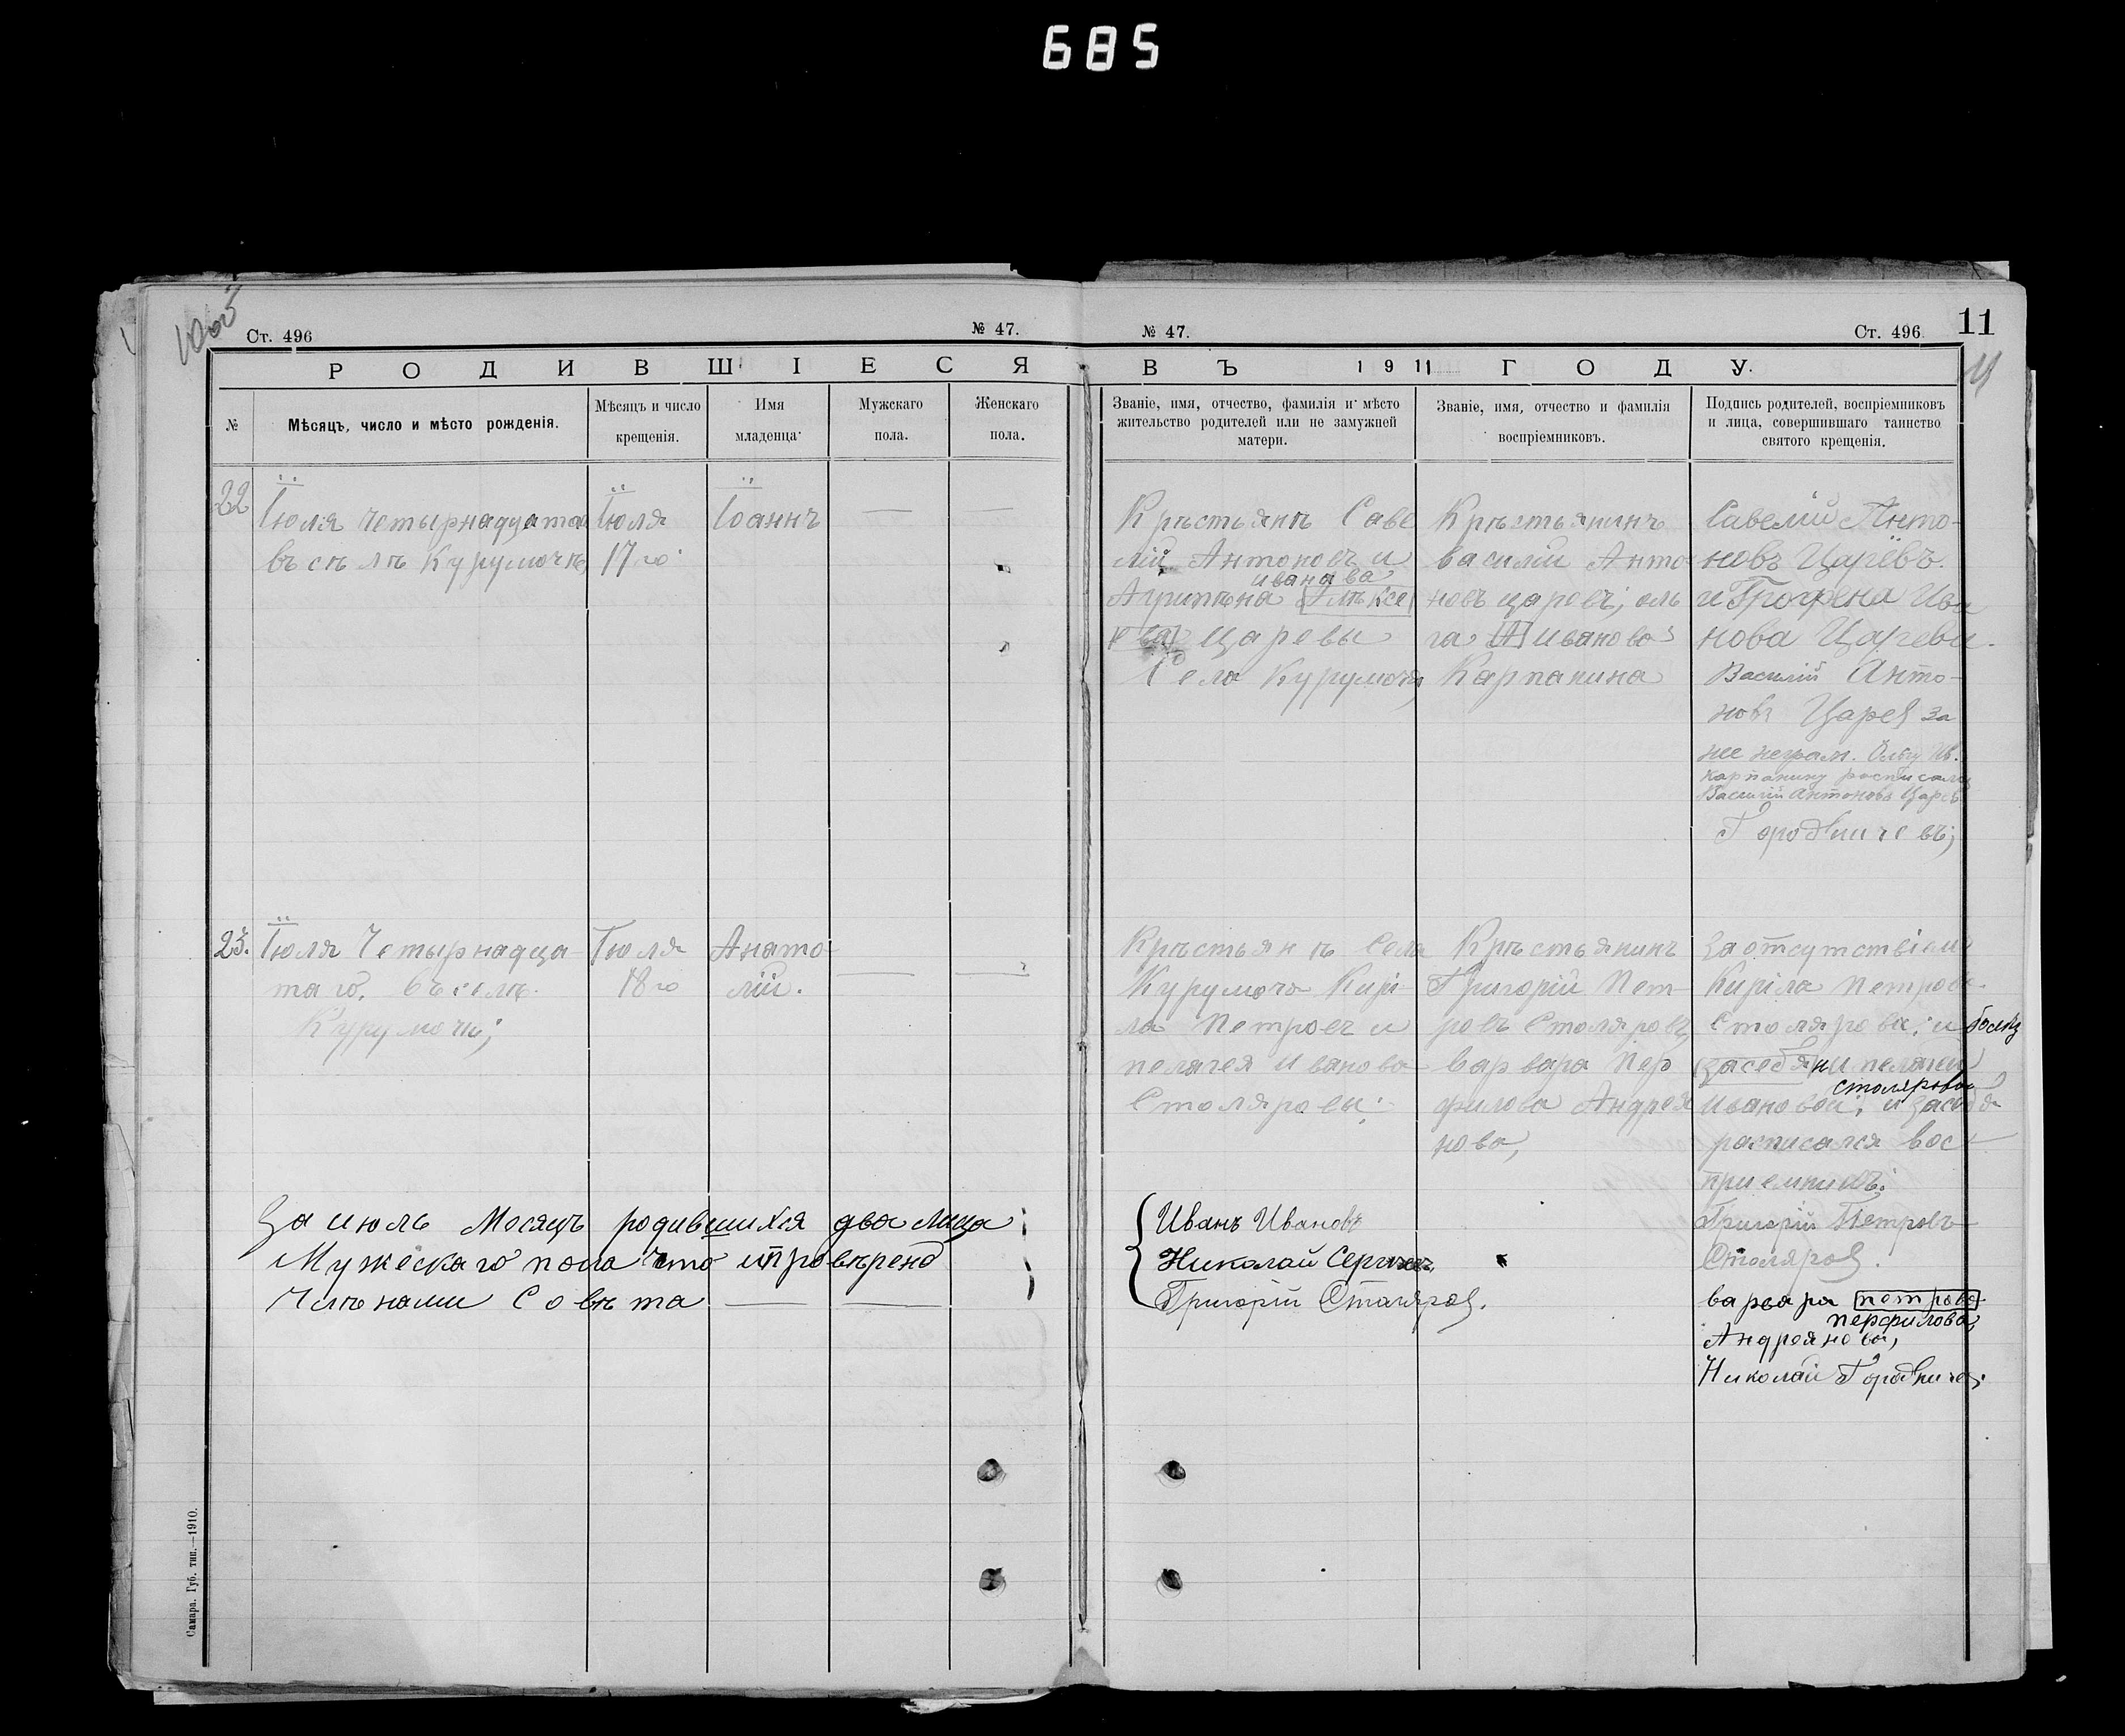 685
Ст. 496
№ 47.
№ 47.
Ст. 496.
11
РОДИВШІЕСЯ
ВЪ 1911 ГОДУ.
№
Мѣсяцъ, число и мѣсто рожденія.
Мѣсяцъ и число
крещенія.
Имя
младенца
Мужскаго
пола.
Женскаго
пола.
Званіе, имя, отчество, фамилія и мѣсто
жительство родителей или не замужней
матери.
Званіе, имя, отчество и фамилія
воспріемниковъ.
Подпись родителей, воспріемниковъ
и лица, совершившаго таинство
святого крещенія.
22
Іюля четырнадцата
въ сѣлѣ Курумочѣ,
Іюля
17го
Іоаннъ
Крѣстьянѣ Саве
лій Антоновъ и
иванова
Агрипѣна Алѣксе
ева Царевы
Села Курумоча,
Крѣстьянинъ
василій Анто
новъ царовъ, оль
га А иванова
Карпанина
Савелій Анто-
новъ Царёвъ.
и Грофена Ива
нова Царева.
Василій Анто-
новъ Царев за
нее неграм. Ольгу Ив.
Карпанину росписался
Василій Антоновъ Царев
Городничевъ;
23.
Іюля Четырнадца-
таго. въ селѣ.
Курумочѣ;
Іюля
18го
Анато-
лій.
Крѣстьянѣ Села
Курумоча Кири-
ла Петровъ и
пелагея Иванова
Столяровы;
Крѣстьянинъ
Григорій Пет-
ровъ Столяровъ,
варвара Пер
филова Андрея
нова,
За отсутствіем
Кирила Петрова
Столярова; и болѣз
за себя и пелагеи
Столяровой
Ивановой; и за себя
расписался вос-
приемникъ:
Григорій Петровъ
Столяров.
варвара петрова
перфилова,
Андреянова,
Николай Городничев.
За июль Месяцъ родившихся два лица
Мужескаго пола что и провѣрено
Члѣнами Совѣта
Иванъ Ивановъ
Николай Сергѣевъ
Григорій Столяров.
Самара. Губ. тип.—1910.